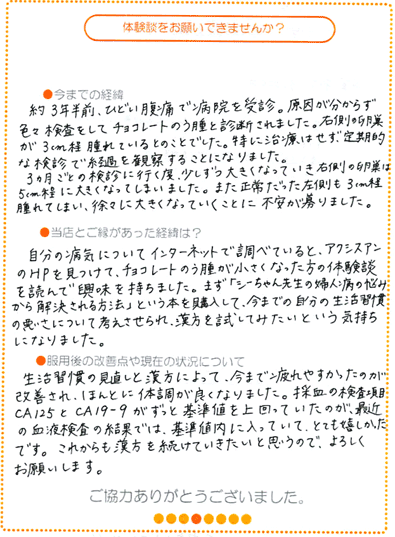 体験談をお願いできませんか？
●今までの経緯
約3年半前、ひどい腹痛で病院を受診。原因が分からず
色々検査をしてチョコレートのう腫と診断されました。右側の卵巣
が3cm程腫れているとのことでした。特に治療はせず定期的
な検診で経過を観察することになりました。
3カ月ごとの検診に行く度、少しずつ大きくなっていき右側の卵巣は
5cm程に大きくなってしまいました。また正常だった左側も3cm程
腫れてしまい、徐々に大きくなっていくことに不安が募りました。
●当店とご縁があった経緯は？
自分の病気についてインターネットで調べていると、アクシスアン
のHPを見つけて、チョコレートのう腫が小さくなった方の体験談
を読んで興味を持ちました。まず「シーちゃん先生の婦人病の悩み
から解決される方法」という本を購入して、今までの自分の生活習慣
の悪さについて考えさせられ、漢方を試してみたいという気持ち
になりました。
●服用後の改善点や現在の状況について
生活習慣の見直しと漢方によって、今まで疲れやすかったのが
改善され、ほんとに体調が良くなりました。採血の検査項目
CA125とCA19-9がずっと基準値を上回っていたのが、最近
の血液検査の結果では、基準値内に入っていて、とても嬉しかった
です。これからも漢方を続けていきたいと思うので、よろしく
お願いします。
ご協力ありがとうございました。